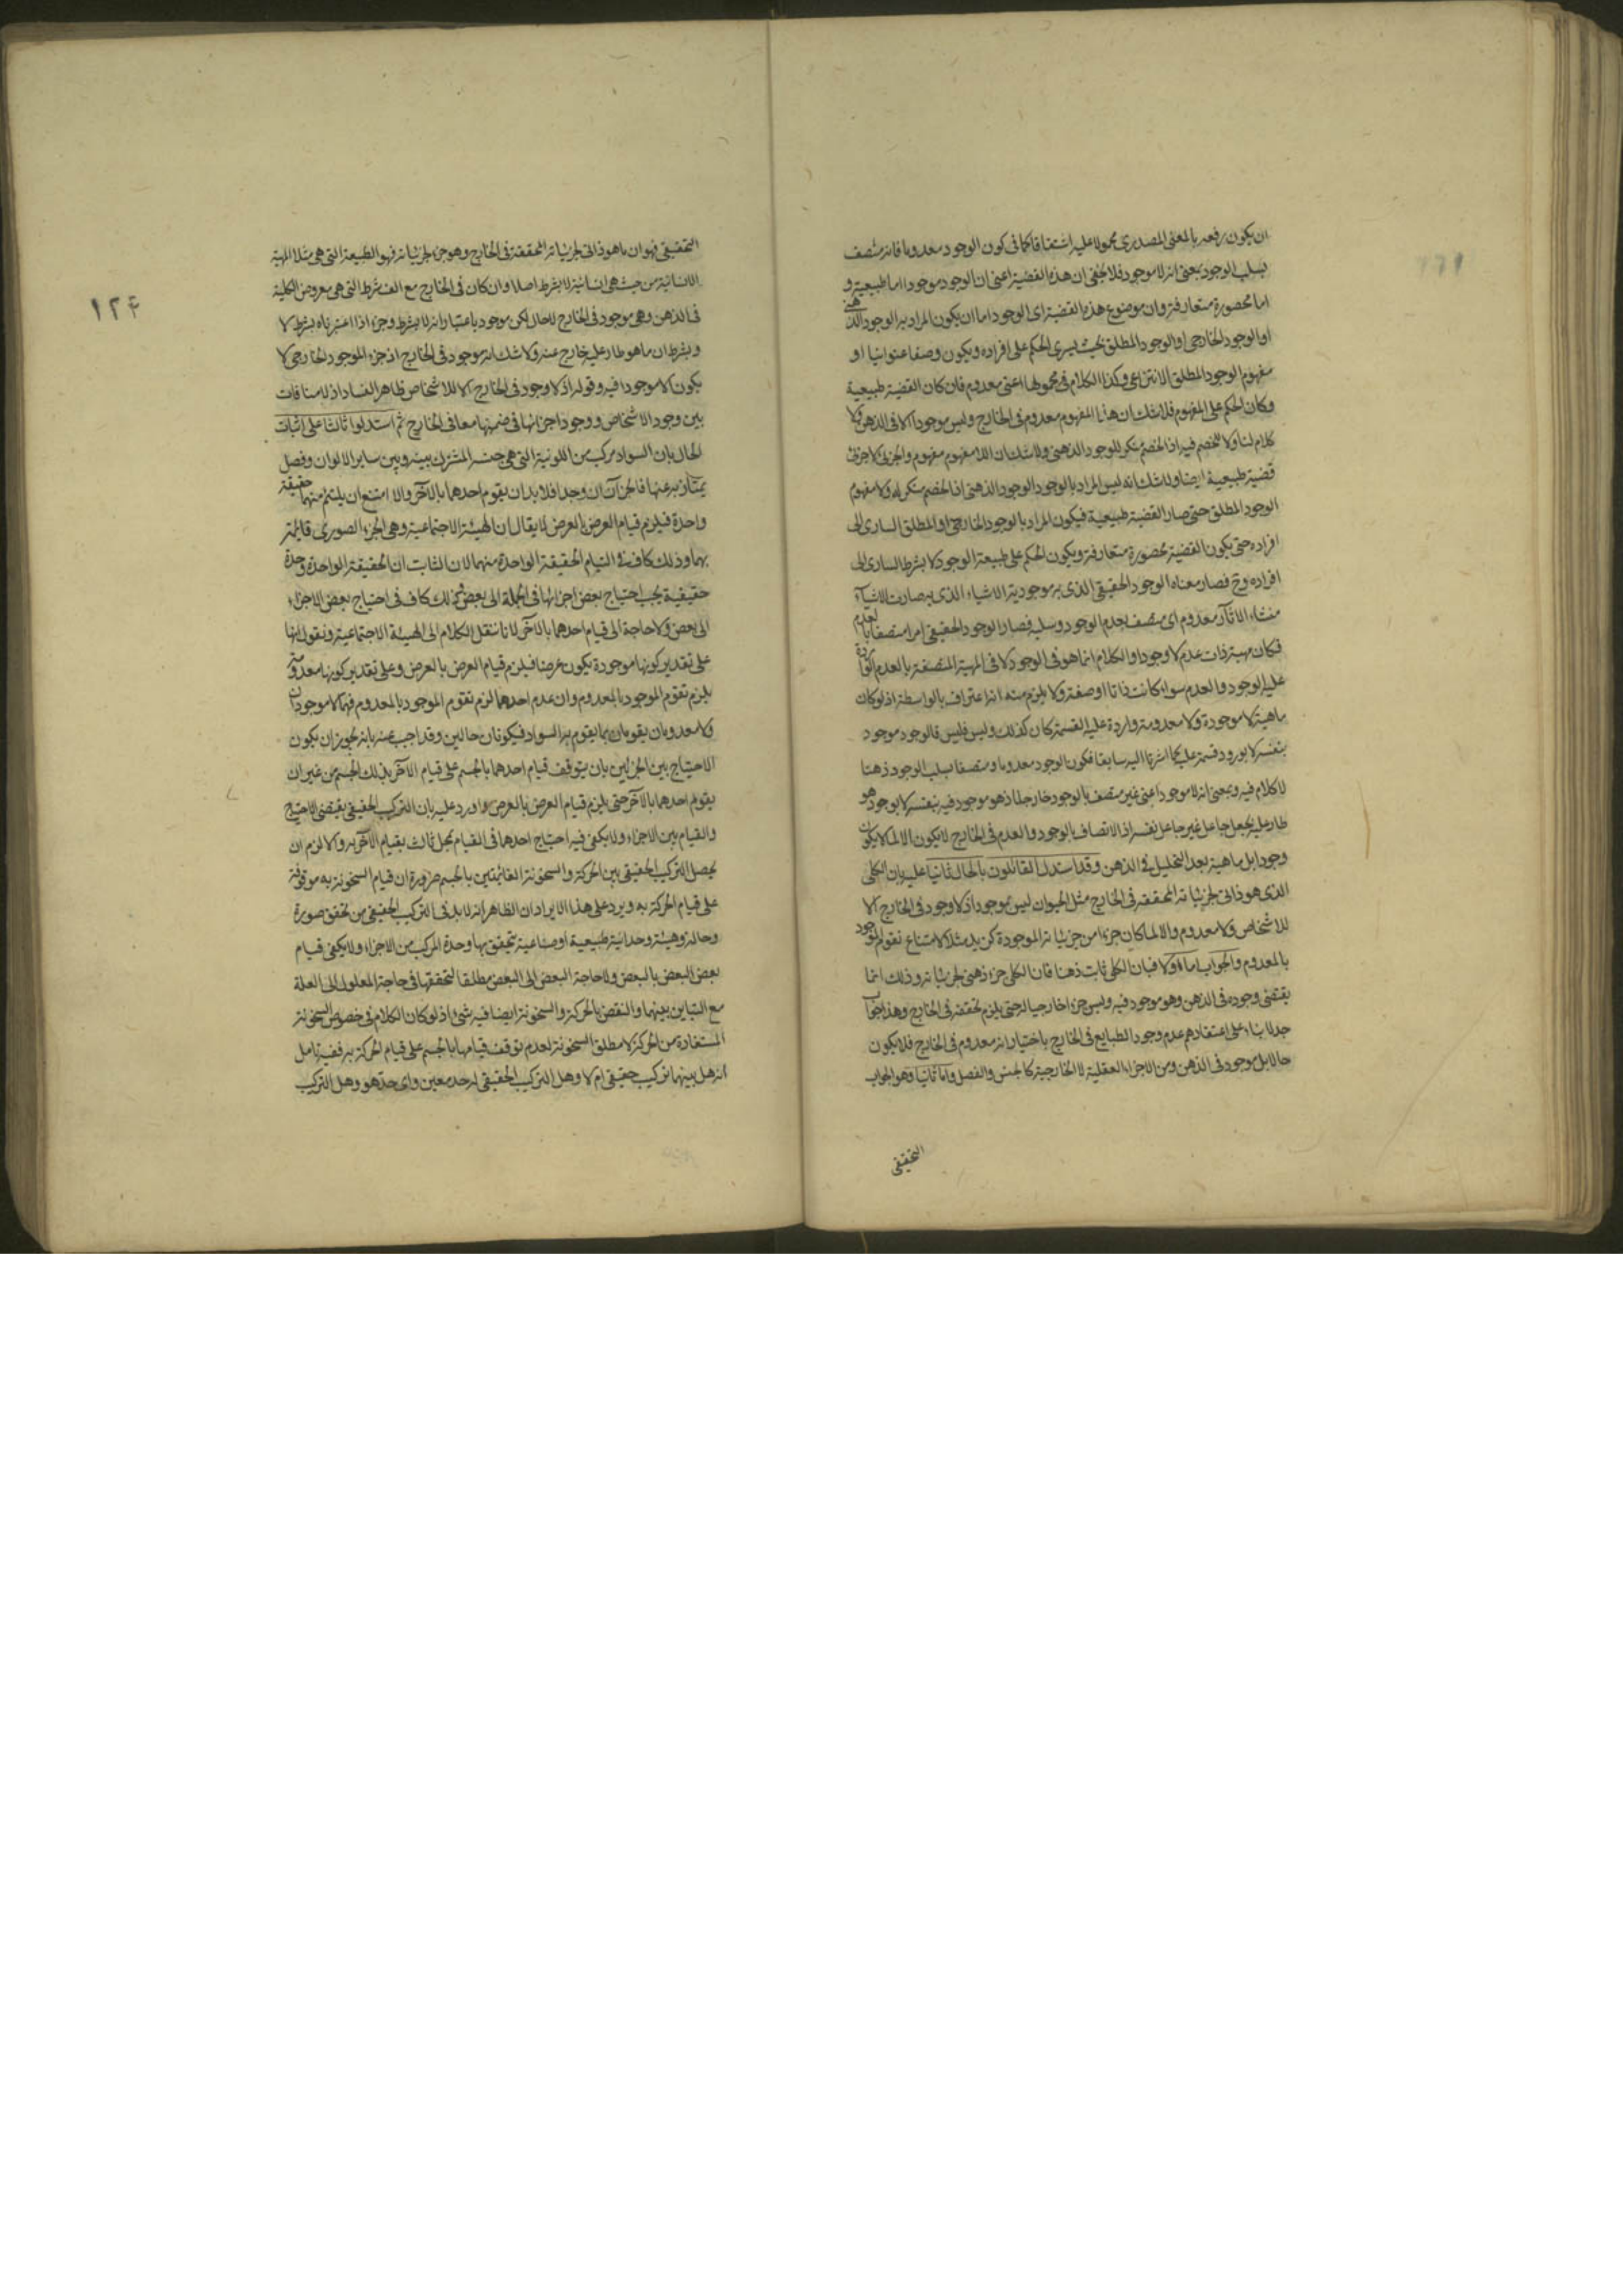 ان يكون رفعه بالمعنى المصدرى محمولا عليه اشتقاقا كما فى كون الوجود معدوما فانه متصف
بسلب الوجود بمعنى انه لا موجود فلا يخفى ان هذه القضية اعنى ان الوجود موجود اما طبيعية و
اما محصورة متعارفة وان موضوع هذه القضية اى الوجود اما ان يكون المراد به الوجود الذهنى
او الوجود الخارجى او الوجود المطلق بحيث يسرى الحكم على افراده ويكون وصفا عنوانيا او
مفهوم الوجود المطلق الانتزاعى وكذا الكلام فى محمولها اعنى معدوم فان كان القضية طبيعية
وكان الحكم على المفهوم فلا شك ان هذا المفهوم معدوم فى الخارج وليس موجودا الا فى الذهن ولا
كلام لنا ولا للخصم فيه اذ الخصم منكر للوجود الذهنى ولا شك ان اللا مفهوم مفهوم والجزئى لا جزئى
قضية طبيعية ايضا ولا شك انه ليس المراد بالوجود الوجود الذهنى اذ الخصم منكر له ولا مفهوم
الوجود المطلق حتى صار القضية طبيعية فيكون المراد بالوجود الخارجى او المطلق السارى الى
افراده حتى يكون القضية محصورة متعارفة ويكون الحكم على طبيعة الوجود لا بشرط السارى الى
افراده وح فصار معناه الوجود الحقيقى الذى به موجودية الاشياء الذى به صارت الاشياء
منشاء الآثار معدوم اى متصف بعدم الوجود وسلبه فصار الوجود الحقيقى امرا متصفا بالعدم
فكان مهية ذات عدم لا وجود او الكلام انما هو فى الوجود لا فى المهية المتصفة بالعدم الواردة
عليه الوجود والعدم سواء كانت ذاتا او صفة ولا يلزم منه انه اعتراف بالواسطة اذ لو كان
ماهية لا موجودة ولا معدومة واردة عليه القسمة كان كذلك وليس فليس فالوجود موجود
بنفسه لا بورود قسمة عليه كما اشرنا اليه سابقا فكون الوجود معدوما ومتصفا بسلب الوجود ذهنا
لا كلام فيه وبمعنى انه لا موجود اعنى غير متصف بالوجود خارجا اذ هو موجود فيه بنفسه لا بوجود هو
طار عليه بجعل جاعل غير جاعل نفسه اذ الاتصاف بالوجود والعدم فى الخارج لا يكون الا لما لا يكون
وجودا بل ماهية بعد التحليل فى الذهن وقد استدل القائلون بالحال ثانيا عليه بان الكلى
الذى هو ذاتى لجزئياته المحققه فى الخارج مثل الحيوان ليس بموجود اذ لا وجود فى الخارج الا
للاشخاص ولا معدوم والا لما كان جزءا من جزئياته الموجودة كزيد مثلا لامتناع تقوم الموجود
بالمعدوم والجواب اما اولا فبان الكلى ثابت ذهنا فان الكلى جزء ذهنى لجزئياته وذلك انما
يقتضى وجوده فى الذهن وهو موجود فيه وليس جزءا خارجيا له حتى يلزم تحققه فى الخارج وهذا الجواب
جدلا بناء على اعتقادهم عدم وجود الطبايع فى الخارج باختيار انه معدوم فى الخارج فلا يكون
حالا بل موجود فى الذهن ومن الاجزاء العقلية لا الخارجية كالجنس والفصل واما ثانيا وهو الجواب
التحقيقى
١٢۴
التحقيقى فهو ان ما هو ذاتى لجزئياته المحققة فى الخارج وهو جزء لجزئياته فهو الطبيعة التى هى مثلا المهية
الانسانية من حيث هى انسانية لا بشرط اصلا وان كان فى الخارج مع الف شرط التى هى معروض الكلية
فى الذهن وهى موجود فى الخارج لا حال لكن موجود باعتبار انه لا بشرط وجزء اذا اعتبرناه بشرط لا
وبشرط ان ما هو طار عليه خارج عنه ولا شك انه موجود فى الخارج اذ جزء الموجود الخارجى لا
يكون الا موجودا فيه وقوله اذ لا وجود فى الخارج الا للاشخاص ظاهر الفساد اذ لا منافات
بين وجود الاشخاص ووجود اجزائها فى ضمنها معا فى الخارج ثم استدلوا ثالثا على اثبات
الحال بان السواد مركب من اللونية التى هى جنسه المشترك بينه وبين ساير الالوان وفصل
يمتاز به عنها فالجزآن ان وجدا فلا بد ان يقوم احدهما بالآخر والا امتنع ان يلتئم منهما حقيقة
واحدة فيلزم قيام العرض بالعرض لا يقال ان الهيئة الاجتماعية وهى الجزء الصورى قائمة
بهما وذلك كاف فى التيام الحقيقة الواحدة منهما لان الثابت ان الحقيقة الواحدة وحدة
حقيقية يجب احتياج بعض اجزائها فى الجملة الى بعض وذلك كاف فى احتياج بعض الاجزاء
الى بعض ولا حاجة الى قيام احدهما بالآخر لانا ننقل الكلام الى الهيئة الاجتماعية ونقول انها
على تقدير كونها موجودة يكون عرضا فيلزم قيام العرض بالعرض وعلى تقدير كونها معدومة
يلزم تقوم الموجود بالمعدوم وان عدم احدهما لزم تقوم الموجود بالمعدوم فهما لا موجودان
ولا معدومان يقومان بما يقوم به السواد فيكونان حالين وقد اجيب عنه بانه يجوز ان يكون
الاحتياج بين الجزئين بان يتوقف قيام احدهما بالجسم على قيام الآخر بذلك الجسم من غير ان
يقوم احدهما بالآخر حتى يلزم قيام العرض بالعرض واورد عليه بان التركيب الحقيقى يقتضى الاحتياج
والقيام بين الاجزاء ولا يكفى فيه احتياج احدهما فى القيام بمحل ثالث بقيام الآخر به والا لزم ان
يحصل التركيب الحقيقى بين الحركة والسخونة القائمتين بالجسم ضرورة ان قيام السخونة به موقوفة
على قيام الحركة به ويرد على هذا الايراد ان الظاهر انه لا بد فى التركيب الحقيقى من تحقق صورة
وحالة وهيئة وحدانية طبيعية او صناعية يتحقق بها وحدة المركب من الاجزاء ولا يكفى قيام
بعض البعض بالبعض ولا حاجة البعض الى البعض مطلقا لتحققها فى حاجة المعلول الى العلة
مع التباين بينهما والنقض بالحركة والسخونة ايضا فيه شئ اذ لو كان الكلام فى خصوص السخونة
المستفادة من الحركة لا مطلق السخونة لعدم توقف قيامها بالجسم على قيام الحركة به ففيه تامل
انه هل بينهما تركيب حقيقى ام لا وهل التركيب الحقيقى له حد معين واى حد هو وهل التركيب